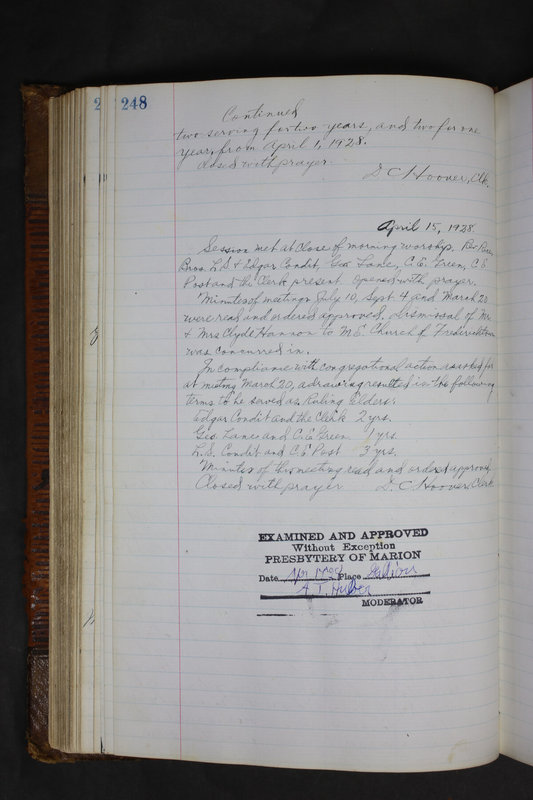 248
Continued
two serving for two years, and two for one
year, from April 1, 1928.
Closed with prayer.
D C Hoover, Clk.
April 15, 1928.
Session met at close of morning worship. Rev
Bros. L.S. & Edgar Condit, Geo Lane, C.E. Green, C E
Post and the Clerk present. Opened with prayer.
Minutes of meetings July 10, Sept. 4 and March 20
were read and ordered approved. Dismissal of Mr.
& Mrs Clyde Hannon to M.E. Church of Fredericktown
was concurred in.
In compliance with congregational action as asked for
at meeting March 20, a drawing resulted in the following
terms to be served as Ruling Elders:
Edgar Condit and the Clerk 2 yrs.
Geo. Lane and C.E. Green 1 yrs.
L.S. Condit and C E Post 3 yrs.
Minutes of this meeting read and ordered approved.
Closed with prayer D. C Hoover, Clerk
EXAMINED AND APPROVED
Without Exception
PRESBYTERY OF MARION
Date Place
MODERATOR